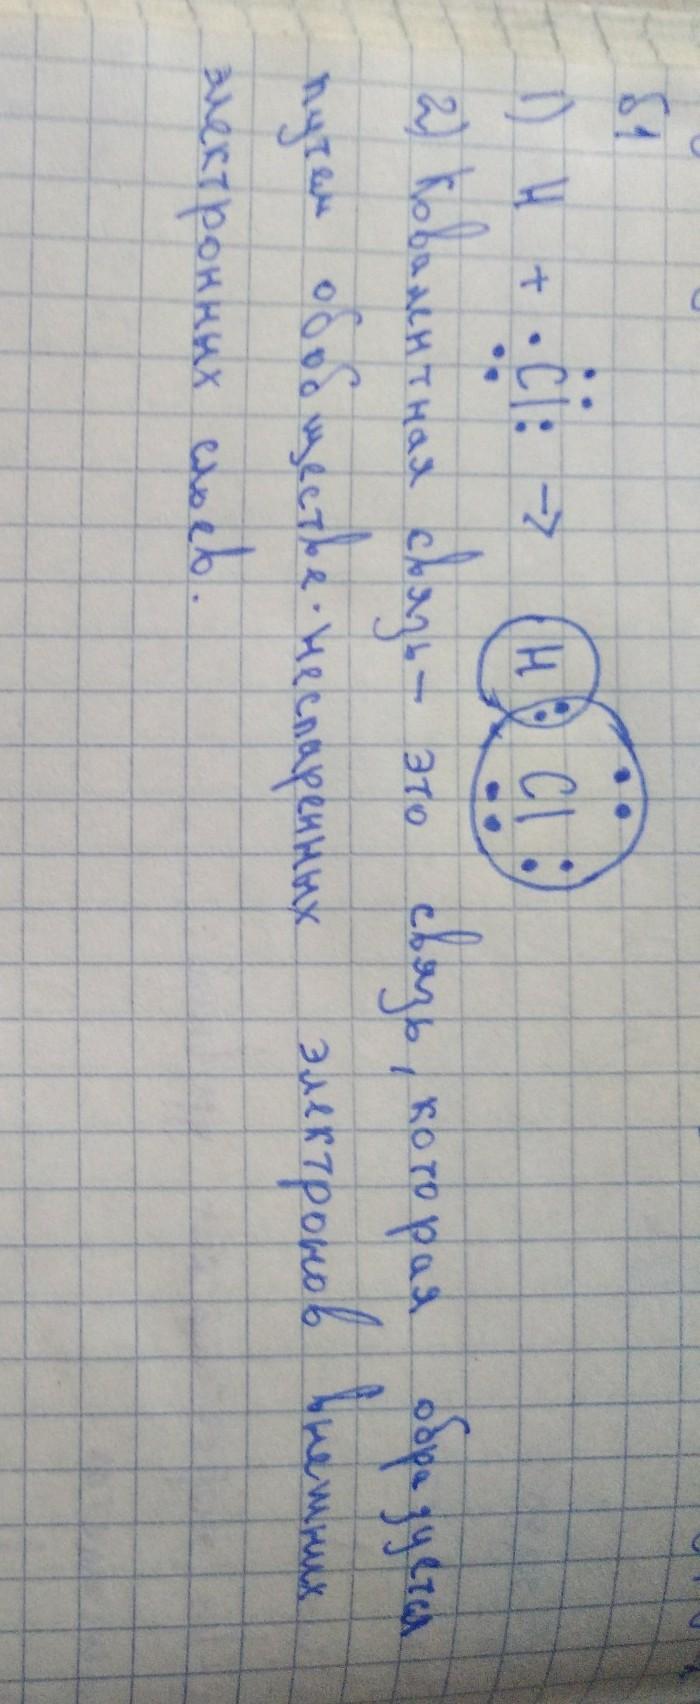 б)
1) H + ·Cl: → H : Cl
2) Ковалентная связь – это связь, которая образуется
путем обобществл. неспаренных электронов внешних
электронных слоев.